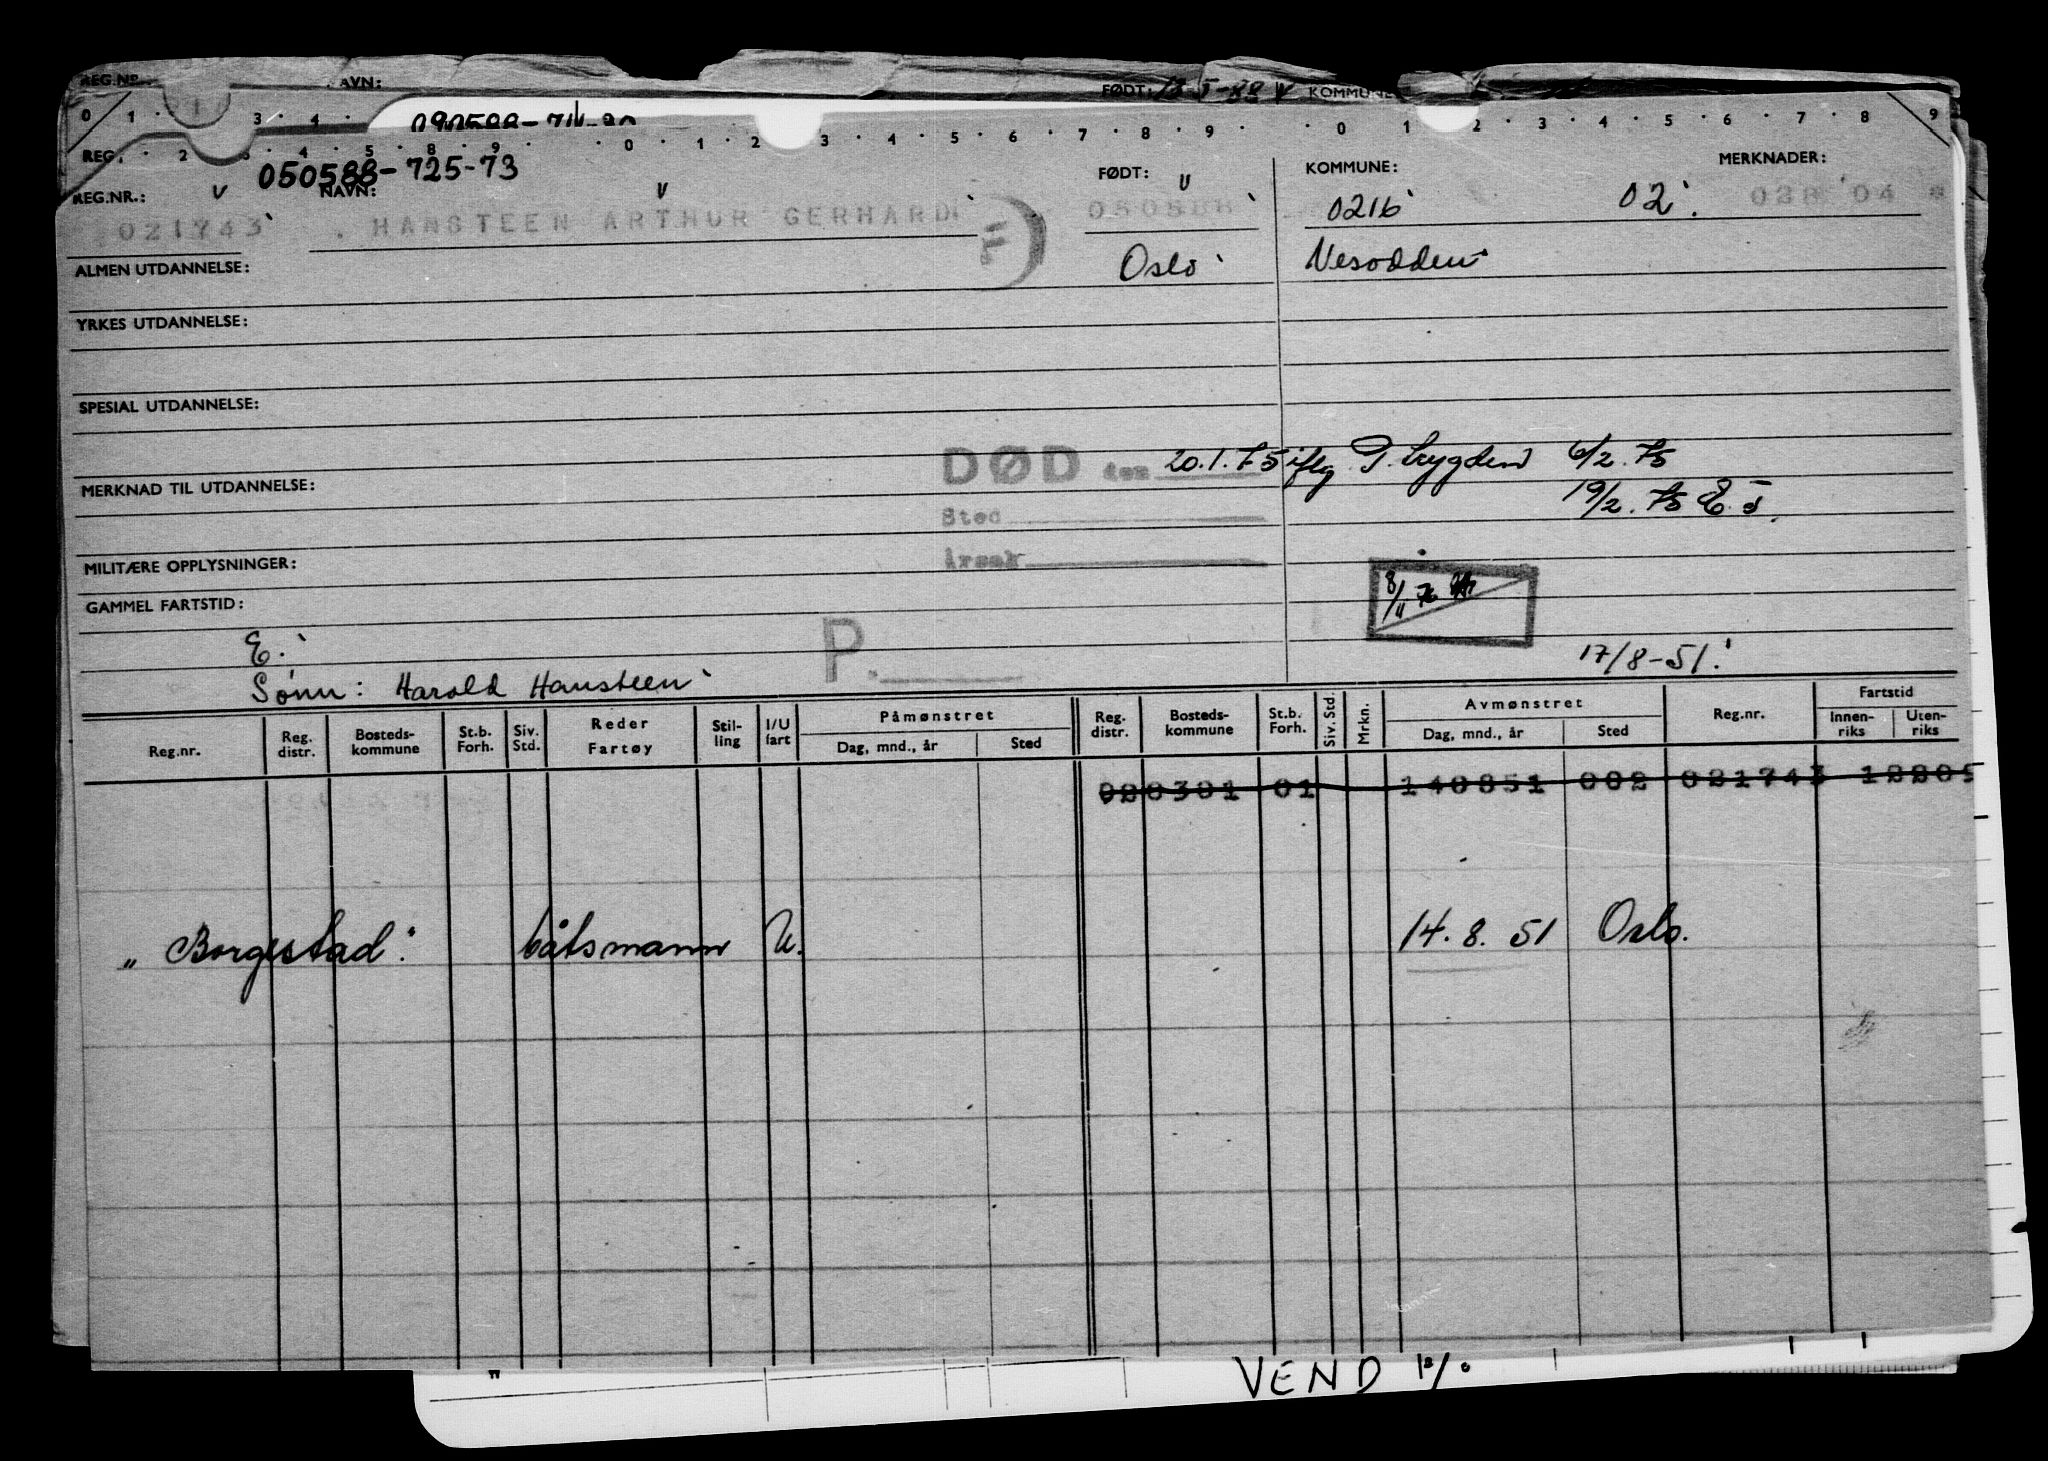 REG.NR. NAVN: FØDT: 13-5-88 V KOMMUNE
0 1 3 4
REG. 2 3 4 5 8 9 0 1 2 3 4 5 6 7 8 9 0 1 2 3 4 5 6 7 8 9
050588-725-73
REG.NR.: V NAVN: V FØDT: V KOMMUNE: MERKNADER:
021743 HANSTEEN ARTHUR GERHARD 050588 0216 02. 028 04 *
ALMEN UTDANNELSE: Oslo Nesodden
YRKES UTDANNELSE:
SPESIAL UTDANNELSE:
DØD den 20.1.75 iflg. P. trygden 6/2.75
MERKNAD TIL UTDANNELSE: 19/2.75
Sted
Årsak
MILITÆRE OPPLYSNINGER: 8/11 76
GAMMEL FARTSTID:
E. P. 17/8-51.
Sønn: Harold Hansteen
Reg.nr. Reg. distr. Bosteds-kommune St.b. Forh. Siv. Std. Reder Fartøy Stil-ling I/U fart Påmønstret Dag, mnd., år Sted Reg. distr. Bosteds-kommune St.b. Forh. Siv. Std. Mrkn. Avmønstret Dag, mnd., år Sted Reg.nr. Fartstid Innen-riks Uten-riks
020301 01 140851 002 021743 12205
„Borgestad." båtsmann U. 14.8.51 Oslo.
VEND